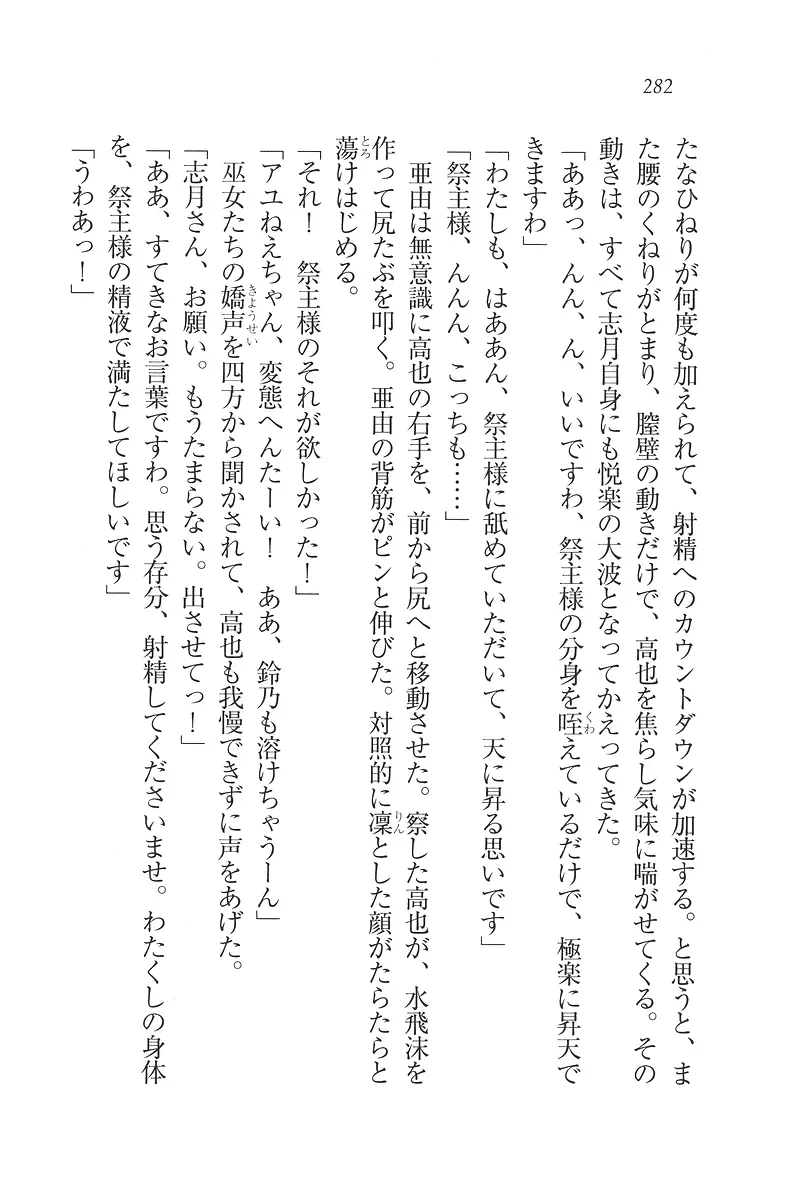 282
たなひねりが何度も加えられて、射精へのカウントダウンが加速する。と思うと、ま
た腰のくねりがとまり、膣壁の動きだけで、高也を焦らし気味に喘がせてくる。その
動きは、すべて志月自身にも悦楽の大波となってかえってきた。
「ああっ、んん、ん、いいですわ、祭主様の分身を咥えているだけで、極楽に昇天で
きますわ」
「わたしも、はああん、祭主様に舐めていただいて、天に昇る思いです」
「祭主様、んんん、こっちも……」
　亜由は無意識に高也の右手を、前から尻へと移動させた。察した高也が、水飛沫を
作って尻たぶを叩く。亜由の背筋がピンと伸びた。対照的に凛とした顔がたらたらと
蕩けはじめる。
「それ！　祭主様のそれが欲しかった！」
「アユねえちゃん、変態へんたーい！　ああ、鈴乃も溶けちゃうーん」
　巫女たちの嬌声を四方から聞かされて、高也も我慢できずに声をあげた。
「志月さん、お願い。もうたまらない。出させてっ！」
「ああ、すてきなお言葉ですわ。思う存分、射精してくださいませ。わたくしの身体
を、祭主様の精液で満たしてほしいです」
「うわあっ！」